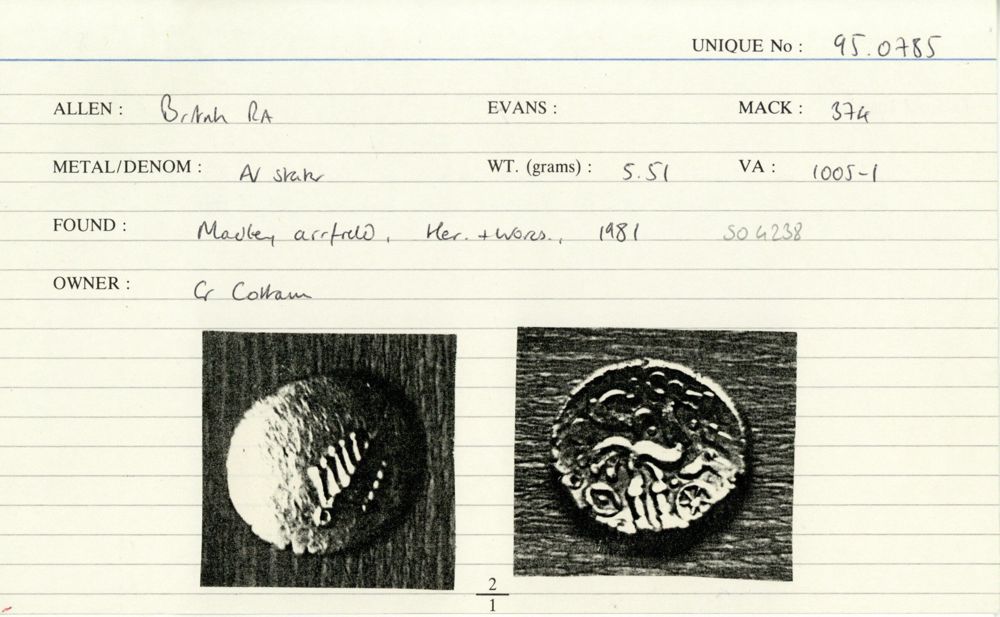 UNIQUE No : 95.0785
ALLEN : British RA EVANS : MACK : 374
METAL/DENOM : AV stater WT. (grams) : 5.51 VA : 1005-1
FOUND : Madley airfield, Her. + Worcs., 1981 SO 4238
OWNER : G Cottam
2
1